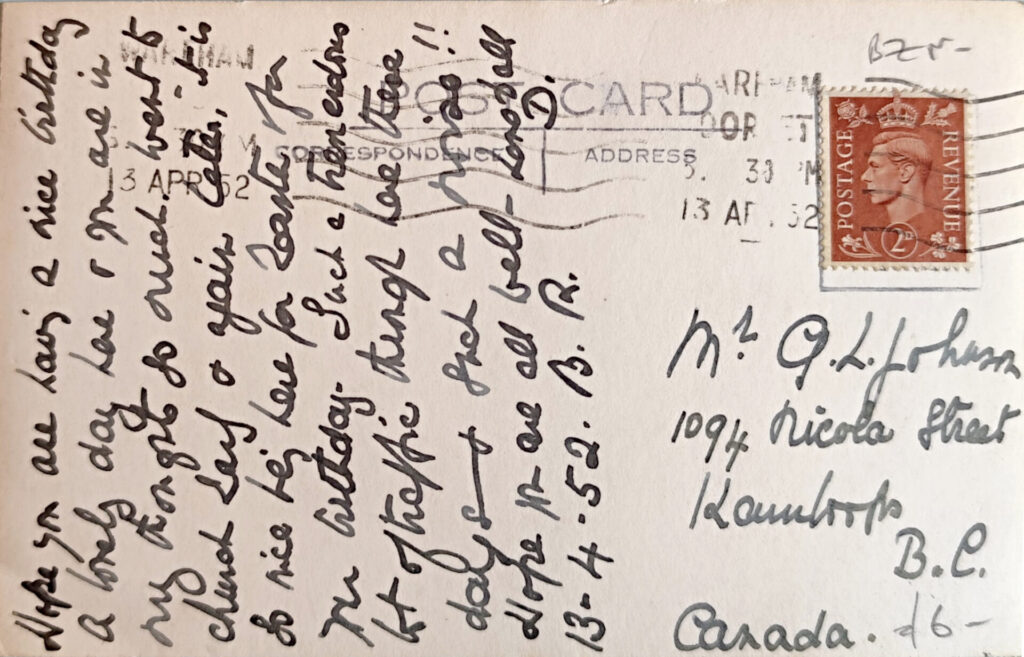 Hope you are having a nice birthday
A lovely day here & you are in
my thoughts so much. Went to
church early & again later, it is
so nice being here for Easter for
your birthday. Such a tremendous
lot of traffic through here these
days — & such a noise!!
Hope you are all well — Love to all
13-4-52. B. R. D.
POST CARD
CORRESPONDENCE
ADDRESS
WAREHAM
13 APR 52
WAREHAM
DORSET
5. 30 PM
13 AP 52
BZN-
POSTAGE
REVENUE
2D
Mr. G. L. Johnson
1094 Nicola Street
Kamloops
B.C.
Canada.
16-